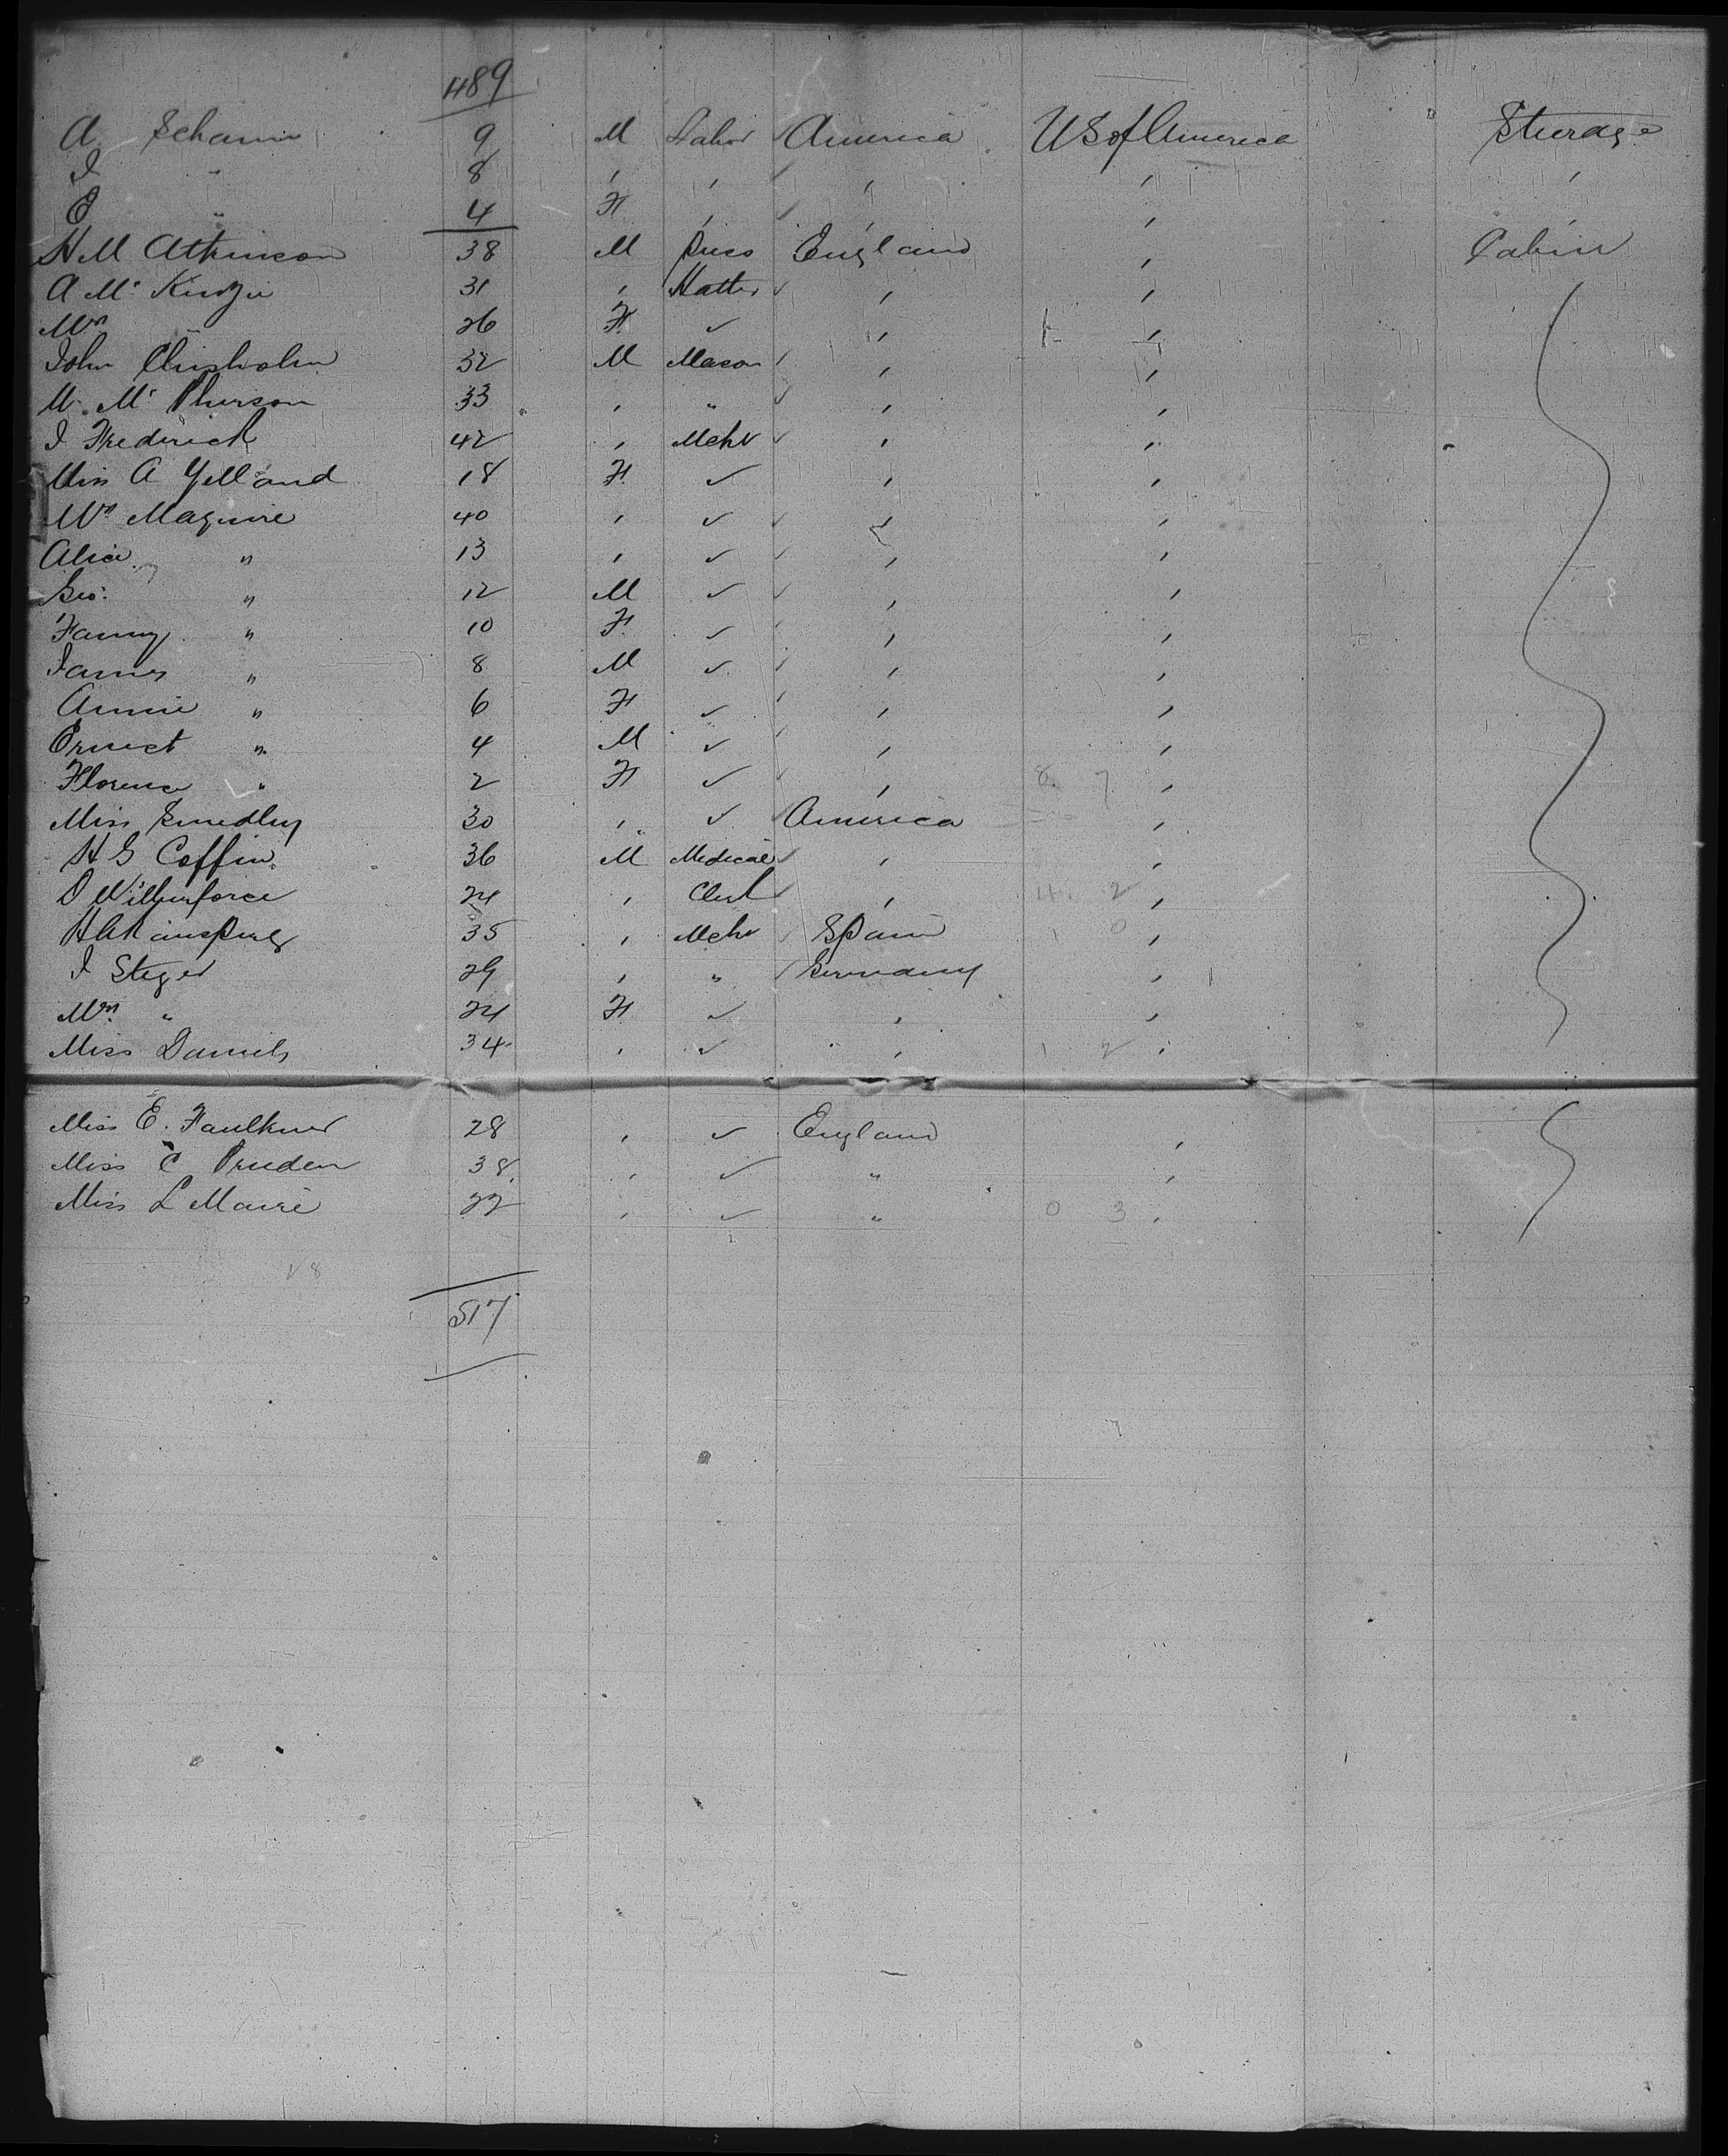 489
A Schaum 9 M Labor America US of America Steerage
I " 8 , , , , ,
E " 4 F , , , ,
H M Atkinson 38 M England , Cabin
A Mc Kinzie 31 , Hatter , ,
Mrs " 26 F ✓ , ,
John Chisholm 32 M Mason , ,
M. Mc Pherson 33 , " , ,
I Frederick 42 , Mcht , ,
Miss A Yelland 18 F ✓ , ,
Mrs Maguire 40 , ✓ , ,
Alice " 13 , ✓ , ,
Geo: " 12 M ✓ , ,
Fanny " 10 F ✓ , ,
James " 8 M ✓ , ,
Annie " 6 F ✓ , ,
Ernest " 4 M ✓ , ,
Florence " 2 F ✓ , , 8 7
Miss Smedley 30 , ✓ America ,
H G Coffin 36 M Medical , ,
O Wilberforce 24 , Clerk , 4 2 ,
35 , Mcht Spain 1 0 ,
I Steger 29 , " Germany ,
Mrs " 24 F ✓ , ,
Miss Daniels 34 , ✓ , 1 2 ,
Miss E. Faulkner 28 , ✓ England ,
Miss C Pruden 38 , ✓ " ,
Miss L Maure 22 , ✓ " 0 3 ,
517